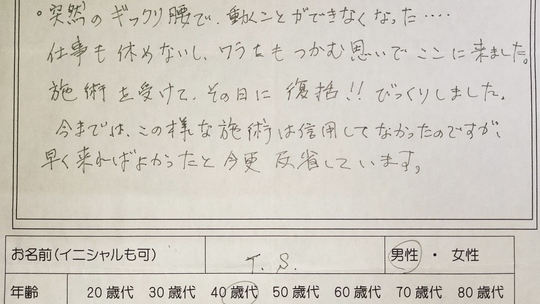 。突然のギックリ腰で、動くことができなくなった‥‥
仕事も休めないし、ワラをもつかむ思いでここに来ました。
施術を受けて、その日に復活!!びっくりしました。
今までは、この様な施術は信用してなかったのですが、
早く来ればよかったと今更反省しています。
お名前(イニシャルも可) T. S. 男性・女性
年齢 20歳代 30歳代 40歳代 50歳代 60歳代 70歳代 80歳代